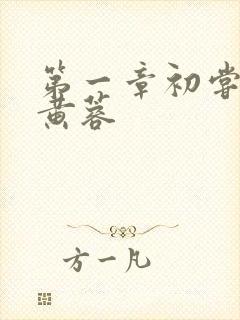 第一章初尝
黄蓉
方一凡